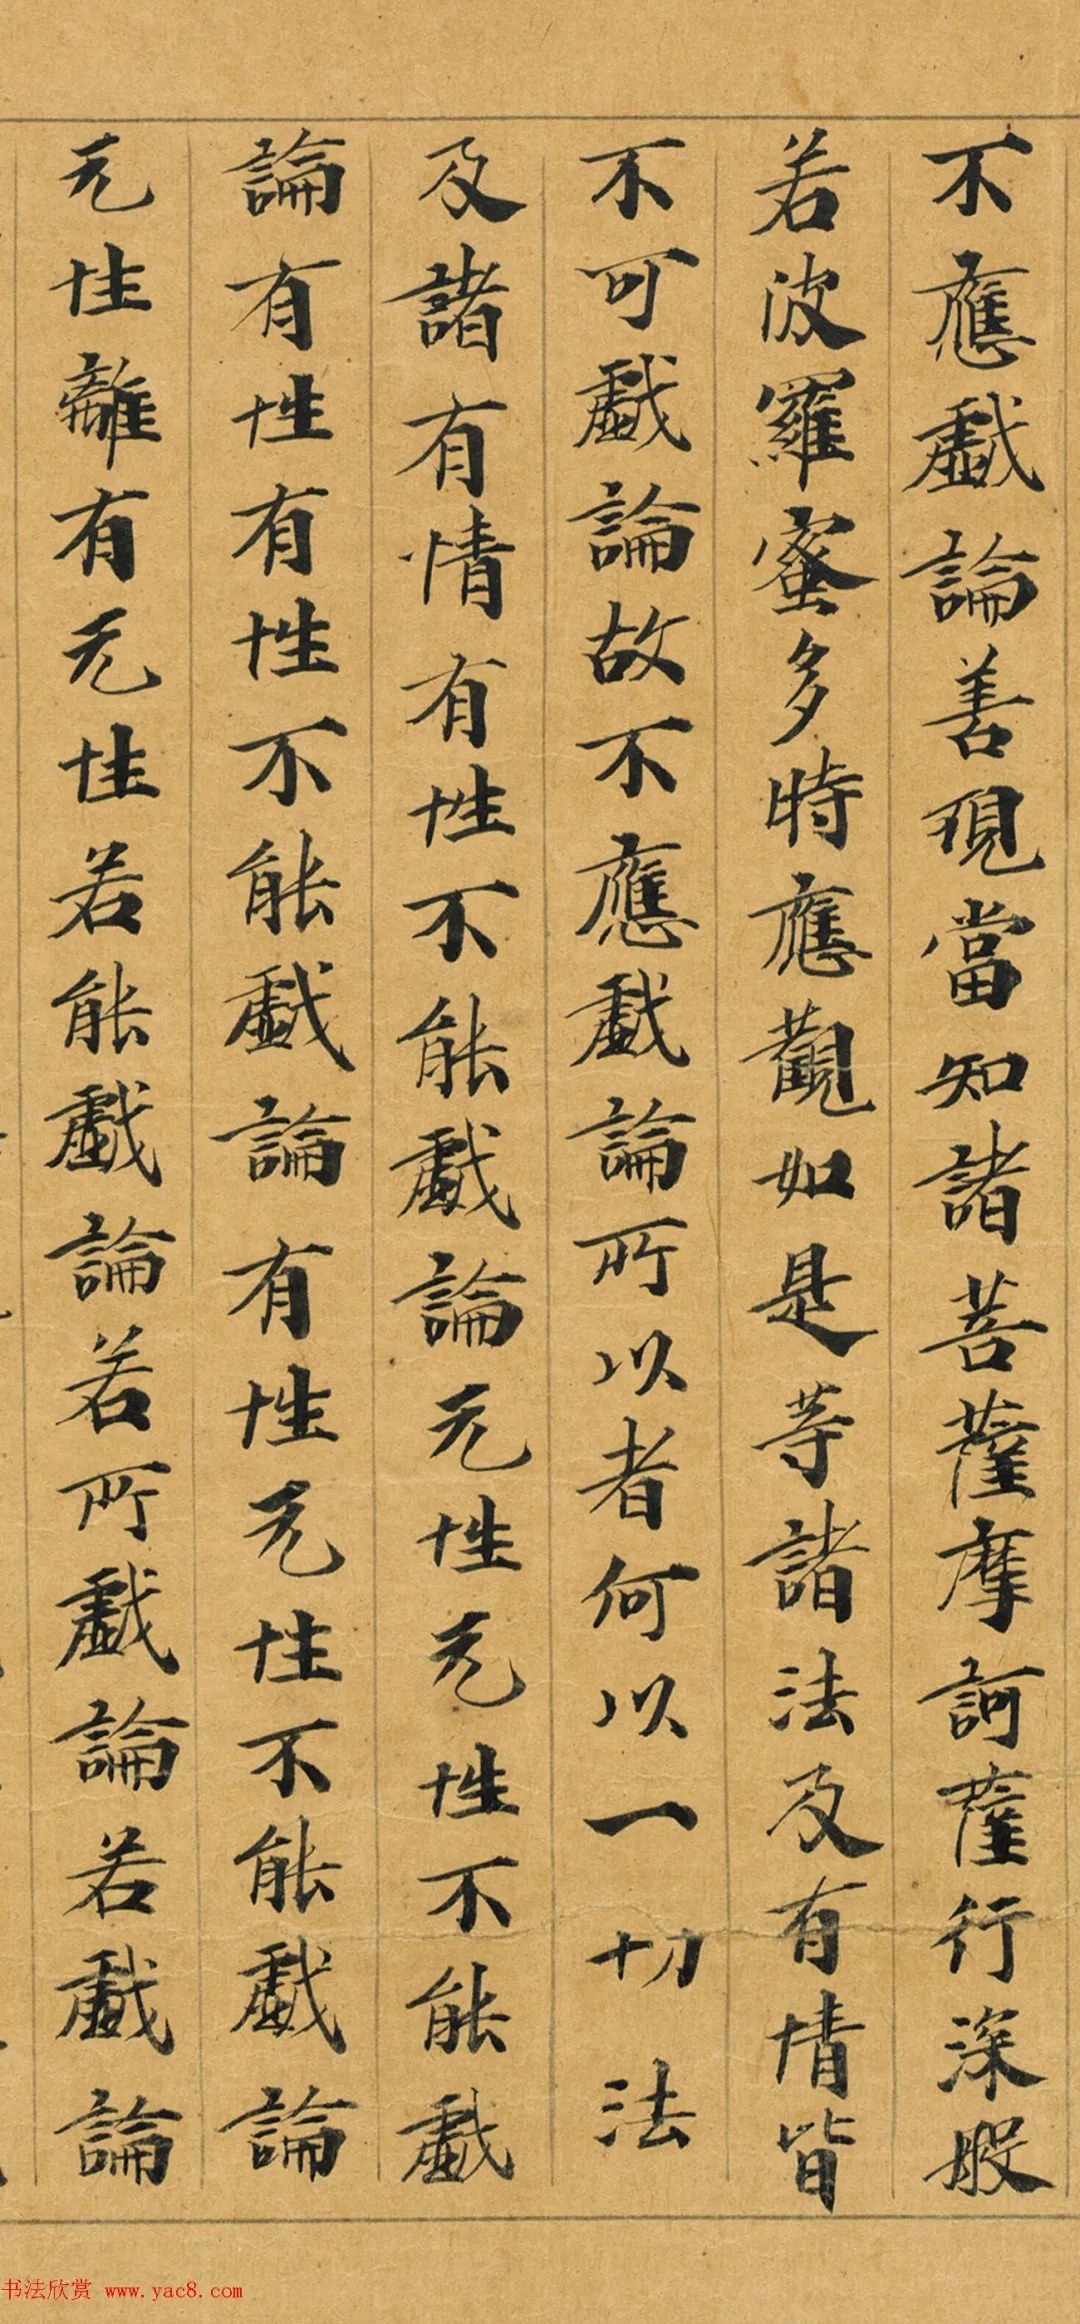 不應戱論善現當知諸菩薩摩訶薩行深般
若波羅蜜多時應觀如是等諸法及有情皆
不可戱論故不應戱論所以者何以一切法
及諸有情有性不能戱論无性无性不能戱
論有性有性不能戱論有性无性不能戱論
无性離有无性若能戱論若所戱論若戱論
书法欣赏 www.yac8.com